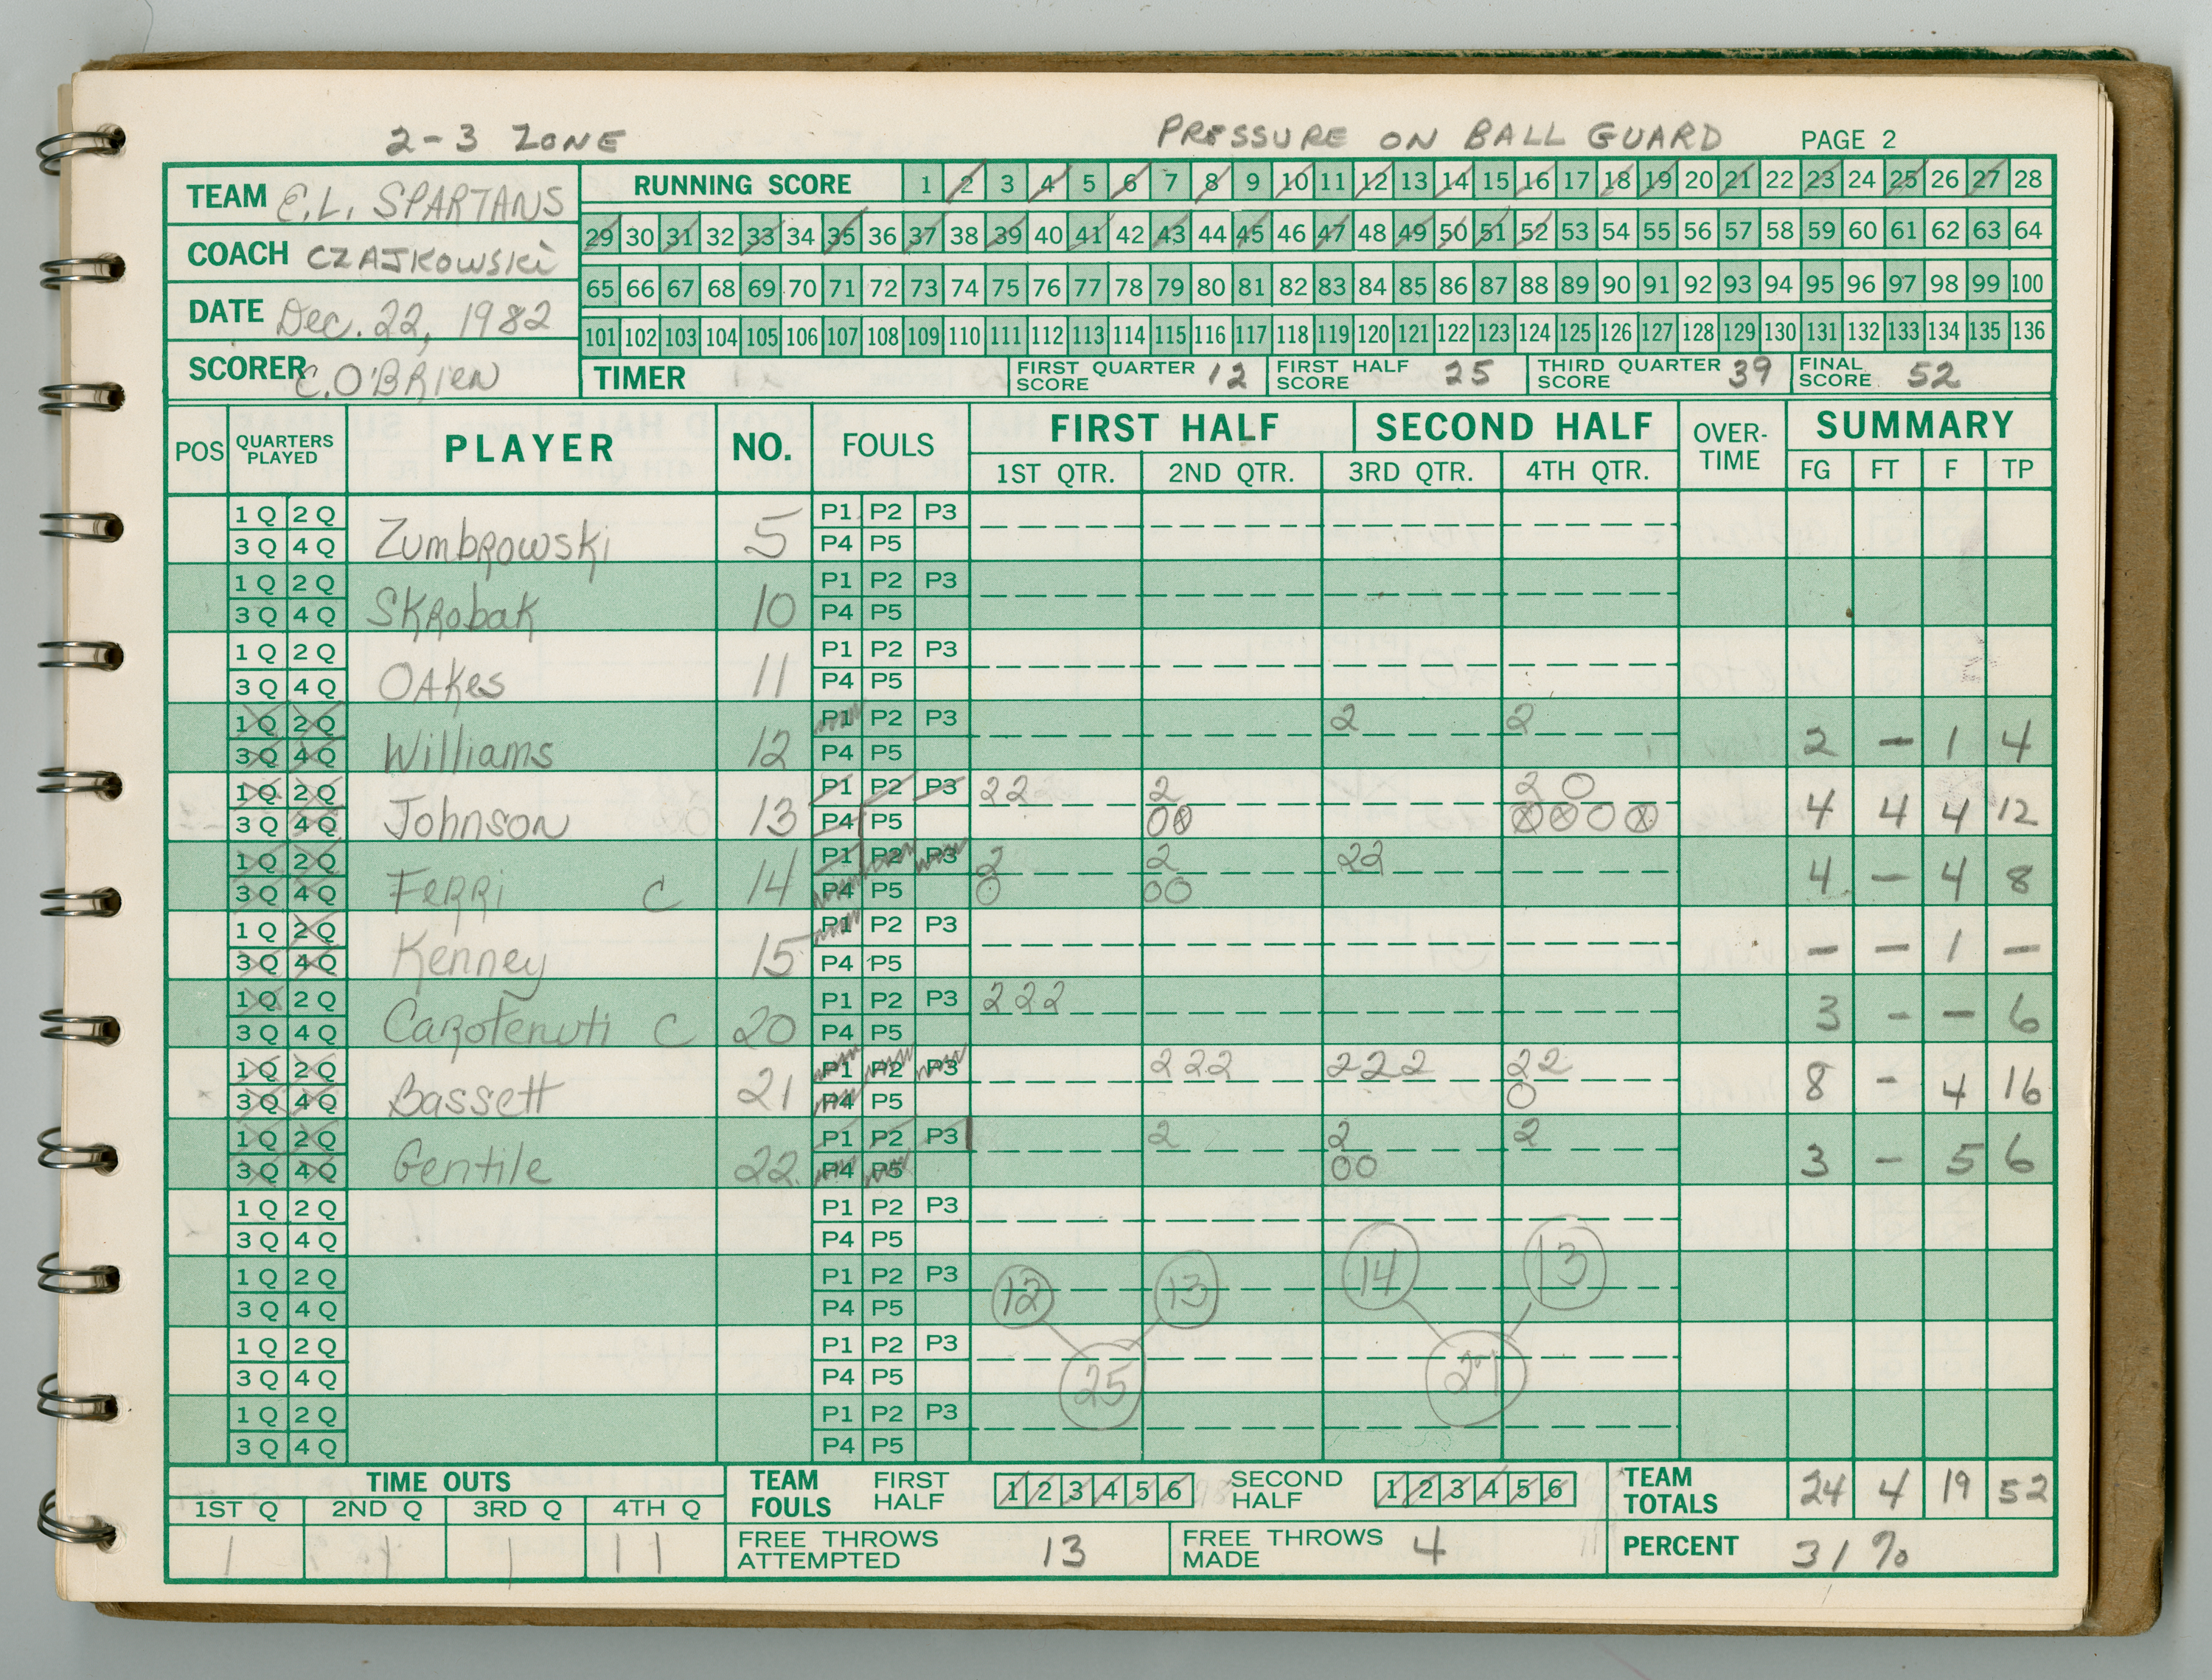 2-3 ZONE PRESSURE ON BALL GUARD PAGE 2
TEAM E.L. SPARTANS
COACH CZAJKOWSKI
DATE Dec. 22, 1982
SCORER C. O'BRIEN
RUNNING SCORE 1 2 3 4 5 6 7 8 9 10 11 12 13 14 15 16 17 18 19 20 21 22 23 24 25 26 27 28
29 30 31 32 33 34 35 36 37 38 39 40 41 42 43 44 45 46 47 48 49 50 51 52 53 54 55 56 57 58 59 60 61 62 63 64
65 66 67 68 69 70 71 72 73 74 75 76 77 78 79 80 81 82 83 84 85 86 87 88 89 90 91 92 93 94 95 96 97 98 99 100
101 102 103 104 105 106 107 108 109 110 111 112 113 114 115 116 117 118 119 120 121 122 123 124 125 126 127 128 129 130 131 132 133 134 135 136
TIMER FIRST QUARTER SCORE 12 FIRST HALF SCORE 25 THIRD QUARTER SCORE 39 FINAL SCORE 52
POS QUARTERS PLAYED PLAYER NO. FOULS FIRST HALF SECOND HALF OVER-TIME SUMMARY
1ST QTR. 2ND QTR. 3RD QTR. 4TH QTR. FG FT F TP
1 Q 2 Q P1 P2 P3
3 Q 4 Q Zumbrowski 5 P4 P5
1 Q 2 Q P1 P2 P3
3 Q 4 Q Skrobak 10 P4 P5
1 Q 2 Q P1 P2 P3
3 Q 4 Q OAKes 11 P4 P5
1 Q 2 Q P1 P2 P3 2 2
3 Q 4 Q Williams 12 P4 P5 2 - 1 4
1 Q 2 Q P1 P2 P3 22 2 2 O
3 Q 4 Q Johnson 13 P4 P5 O⊗ ⊗⊗O⊗ 4 4 4 12
1 Q 2 Q P1 P2 P3 2 2 22
3 Q 4 Q Ferri C 14 P4 P5 O OO 4 - 4 8
1 Q 2 Q P1 P2 P3
3 Q 4 Q Kenney 15 P4 P5 - - 1 -
1 Q 2 Q P1 P2 P3 222
3 Q 4 Q Carotenuti C 20 P4 P5 3 - - 6
1 Q 2 Q P1 P2 P3 222 222 22
3 Q 4 Q Bassett 21 P4 P5 O 8 - 4 16
1 Q 2 Q P1 P2 P3 2 2 2
3 Q 4 Q Gentile 22 P4 P5 OO 3 - 5 6
1 Q 2 Q P1 P2 P3
3 Q 4 Q P4 P5
1 Q 2 Q P1 P2 P3 12 13 14 13
3 Q 4 Q P4 P5
1 Q 2 Q P1 P2 P3
3 Q 4 Q P4 P5 25 27
1 Q 2 Q P1 P2 P3
3 Q 4 Q P4 P5
TIME OUTS
1ST Q 2ND Q 3RD Q 4TH Q
1 1 1 11
TEAM FOULS FIRST HALF 1 2 3 4 5 6 SECOND HALF 1 2 3 4 5 6
TEAM TOTALS 24 4 19 52
FREE THROWS ATTEMPTED 13 FREE THROWS MADE 4 PERCENT 31%